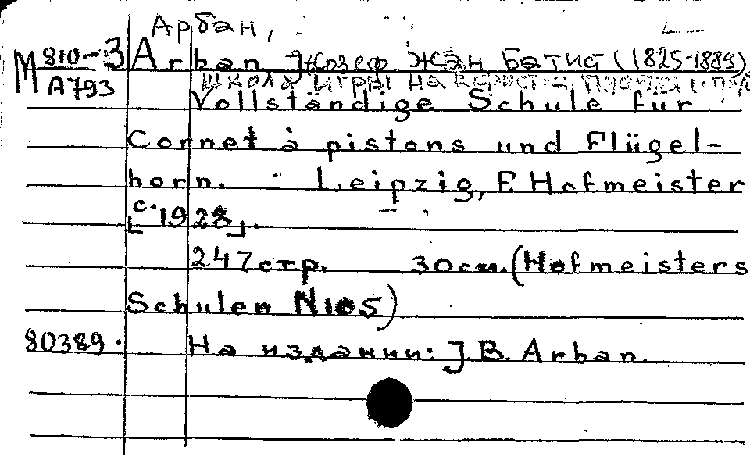 Арбан,
М 810-3 Arban, Жозеф Жан Батист (1825-1889)
А793 Школа игры на
Vollständige Schule für
Cornet à pistons und Flügel-
horn. Leipzig, F. Hofmeister
[c. 1928].
247 стр. 30 см. (Hofmeisters
Schulen N105)
80389. На издании: J. B. Arban.